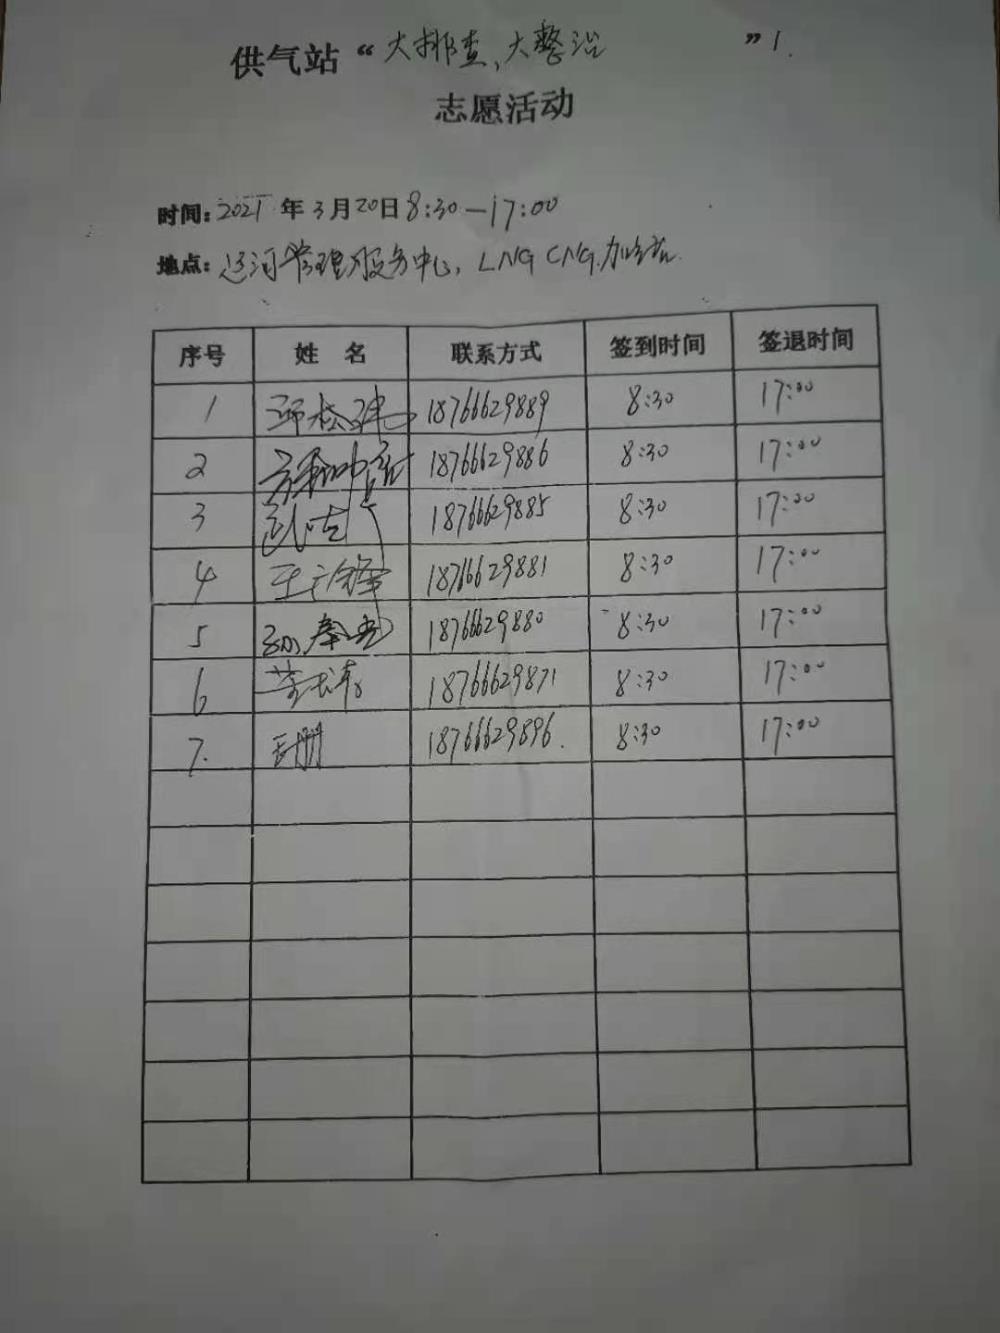 供气站“大排查、大整治”1.
志愿活动
时间:2021年3月20日8:30—17:00
地点:运河管理服务中心, LNG CNG加气站
序号 姓名 联系方式 签到时间 签退时间
1 18766629889 8:30 17:00
2 18766629886 8:30 17:00
3 18766629885 8:30 17:00
4 18766629881 8:30 17:00
5 18766629880 8:30 17:00
6 18766629871 8:30 17:00
7. 18766629896. 8:30 17:00